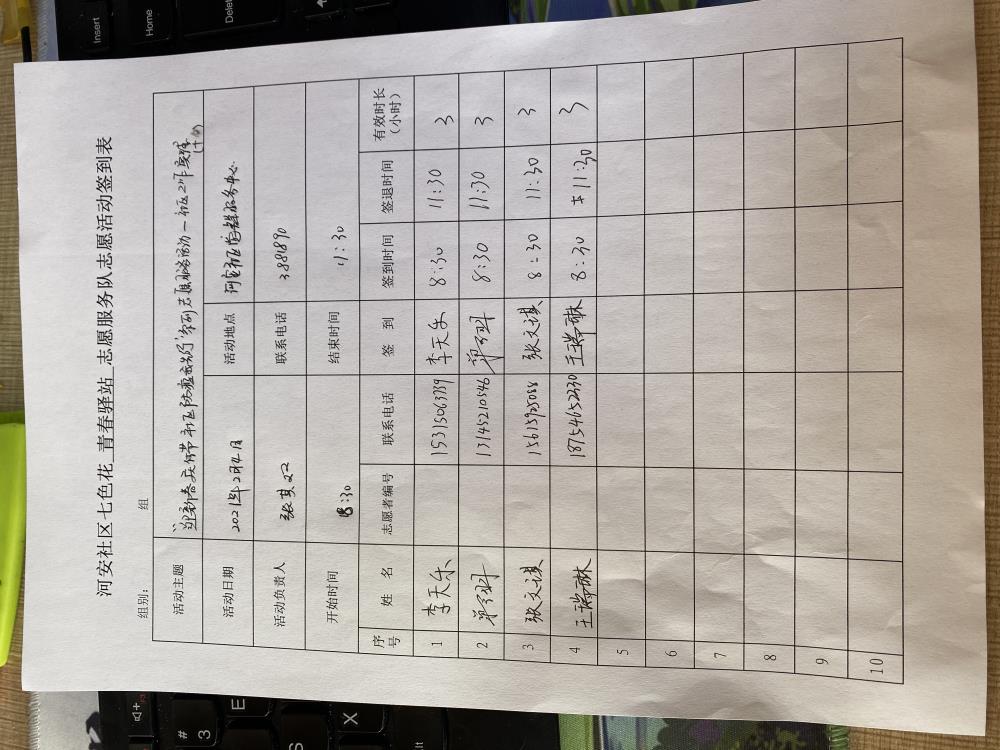 河安社区七色花_青春驿站_志愿服务队志愿活动签到表
组别: 组
活动主题 “迎新春庆佳节 社区防疫我先行”系列志愿服务活动—社区工作实践
活动日期 2021年2月4日 活动地点 河安社区党群服务中心
活动负责人 联系电话 3881890
开始时间 8:30 结束时间 11:30
序号 姓 名 志愿者编号 联系电话 签 到 签到时间 签退时间 有效时长（小时）
1 李天乐 15315063759 李天乐 8:30 11:30 3
2 13145210546 8:30 11:30 3
3 张文琪 15615925088 张文琪 8:30 11:30 3
4 王瑞琳 18754652330 王瑞琳 8:30 11:30 3
5
6
7
8
9
10
Insert
Home
Delete
#
3
E
S
X